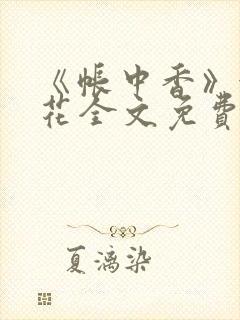 《帐中香》
花全文免費
夏漓染